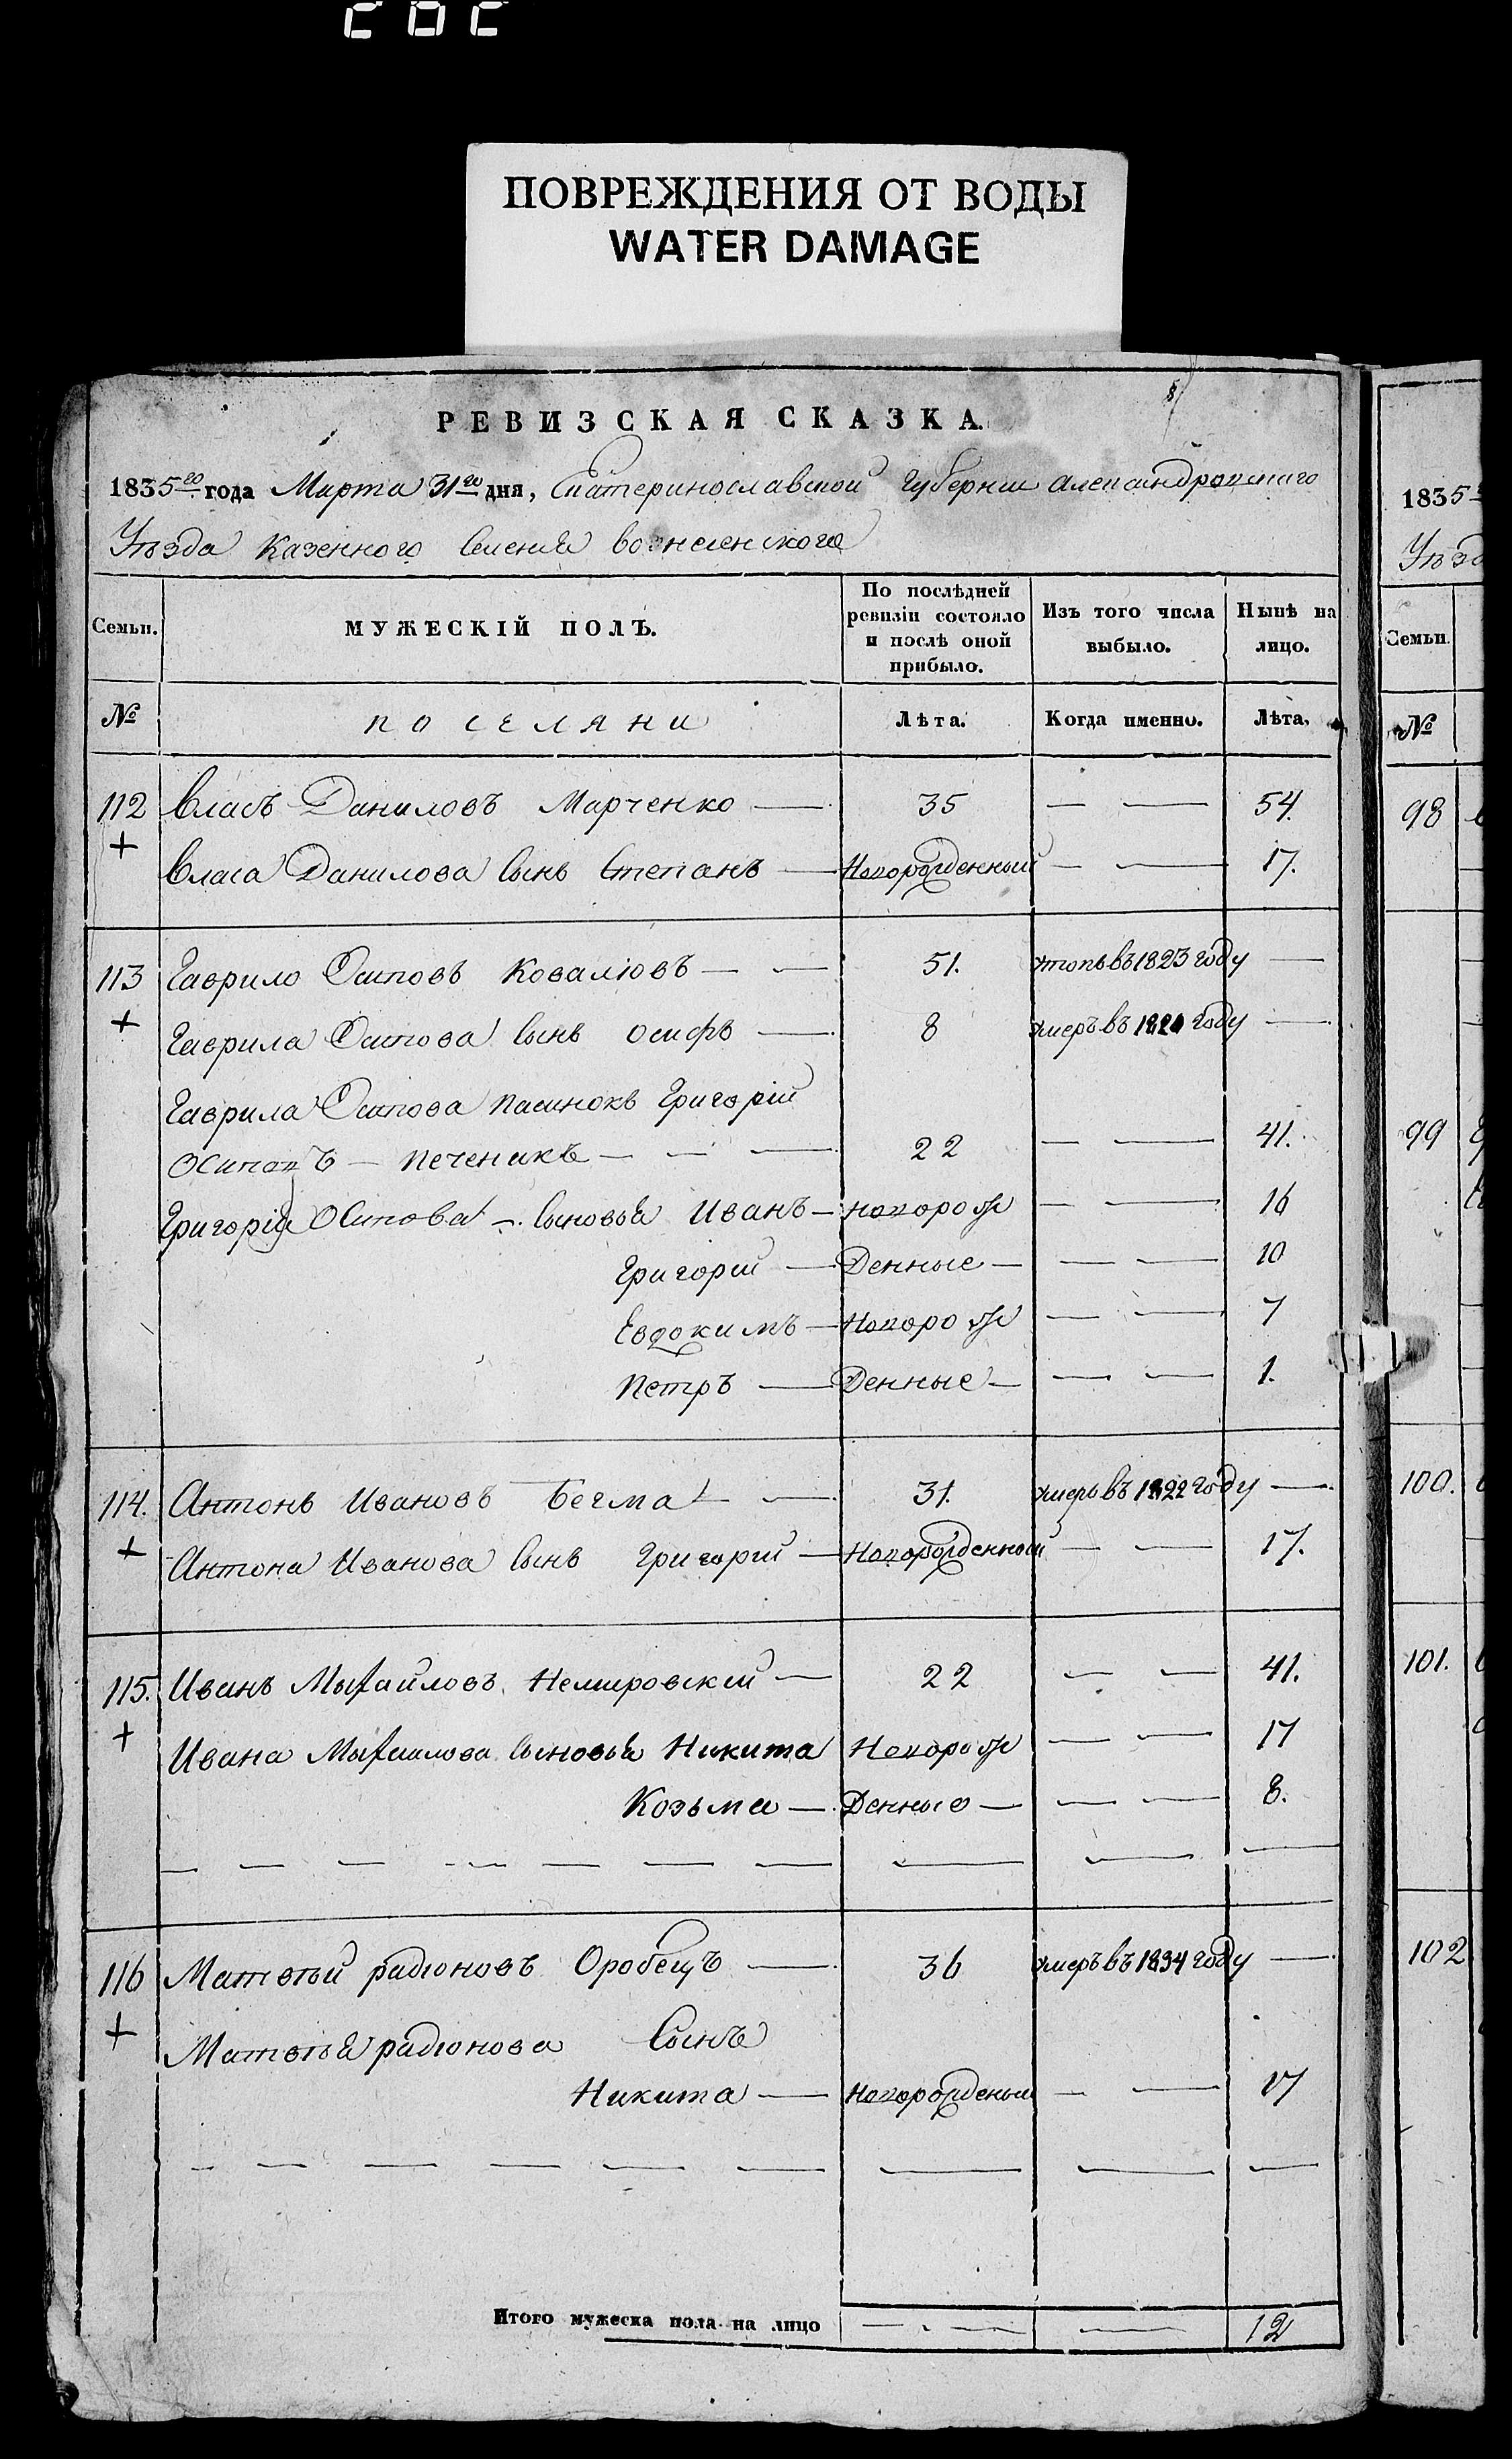 ПОВРЕЖДЕНИЯ ОТ ВОДЫ
WATER DAMAGE
РЕВИЗСКАЯ СКАЗКА.
1835го года Марта 31го дня, Екатеринославской Губернии Александровского
Уѣзда Казенного Селения Вознесенского
Семьи. МУЖЕСКІЙ ПОЛЪ. По послѣдней ревизіи состояло и послѣ оной прибыло. Изъ того числа выбыло. Нынѣ на лицо.
№ поселяни Лѣта. Когда именно. Лѣта.
112 Власъ Даниловъ Марченко — 35 — — 54.
+ Власа Данилова Сынъ Степанъ — Новорожденный — — 17.
113 Гаврило Осиповъ Ковалювъ — — 51. утопъ въ 1823 году —
+ Гаврила Осипова Сынъ Осифъ — 8 умеръ въ 1820 году —
Гаврила Осипова пасинокъ Григорій
Осиповъ — Печеникъ — — — 22 — — 41.
Григорія Осипова — Сыновья Иванъ — новорож — — 16
Григорій — Денные — — — 10
Евдокимъ — Новорож — — 7
Петръ — Денные — — — 1.
114. Антонъ Ивановъ Бегма — — 31. умеръ въ 1822 году —
+ Антона Иванова Сынъ Григорій — Новорожденной — — 17.
115. Иванъ Мыхайловъ Немировскій — 22 — — 41.
+ Ивана Мыхаилова Сыновья Никита Новорож — — 17
Козьма — Денные — — — 8.
116 Матвѣй радіоновъ Оробецъ — 36 умеръ въ 1834 году —
+ Матвѣя радіонова Сынъ
Никита — Новорожденый — — 17
Итого мужеска пола на лицо — — — 12
1835
Уѣзд
Семьи.
№
98
99
100.
101.
102